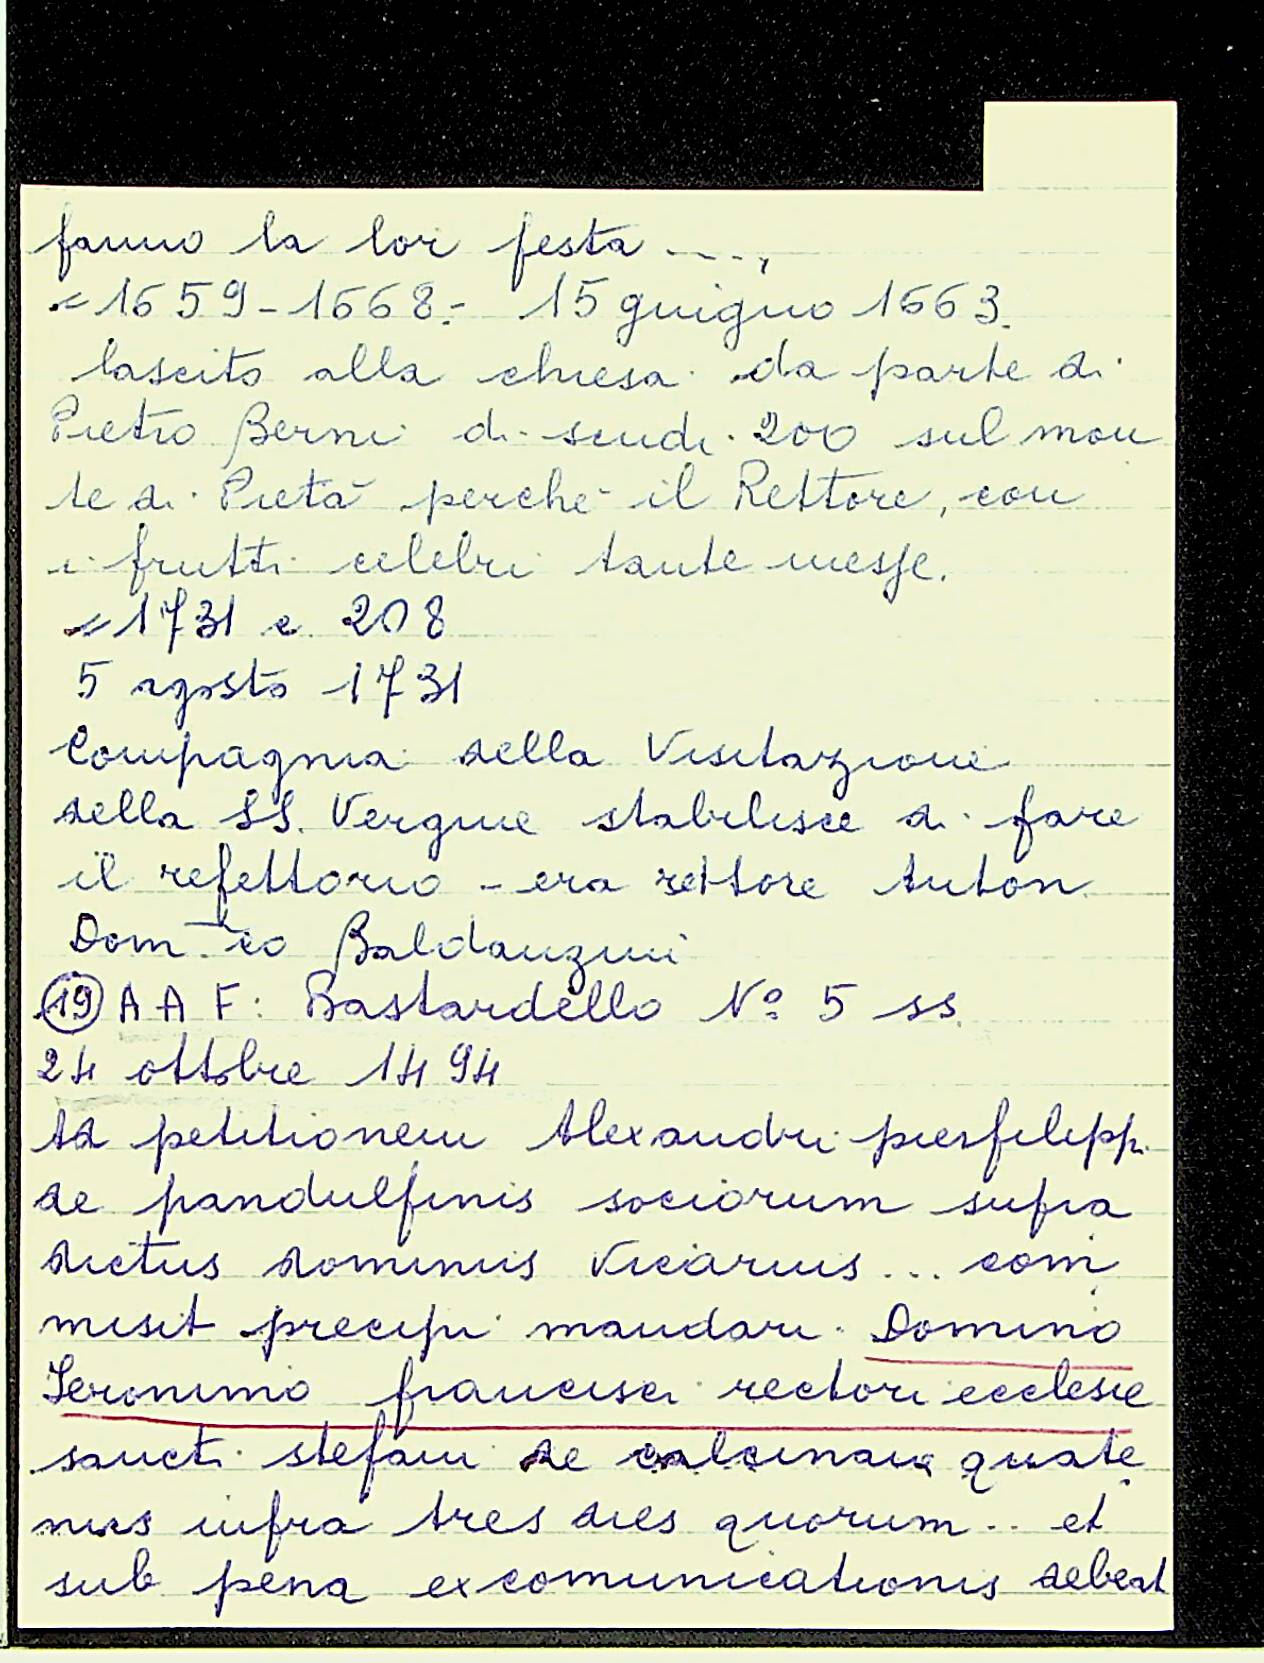 fanno la lor festa ....,
= 1659-1668:- 15 guigno 1663.
lascito alla chiesa da parte di
Pietro Berni di scudi 200 sul mon
te di Pietà perchè il Rettore, con
i frutti celebri tante messe.
= 1731 c. 208
5 agosto 1731
Compagnia della Visitazione
della SS. Vergine stabilisce di fare
il refettorio - era rettore Anton
Dom.co Baldanzini
(19) A A F: Bastardello Nº 5 ss
24 ottobre 1494
Ad petitionem Alexandri pierfilippi
de pandulfinis sociorum supra
dictus dominus Vicarius ... com
misit precipi mandari Domino
Ieronimo francisci rectori ecclesie
sancti stefani de calcinaia quate
nus infra tres dies quorum .. et
sub pena excomunicationis debeat